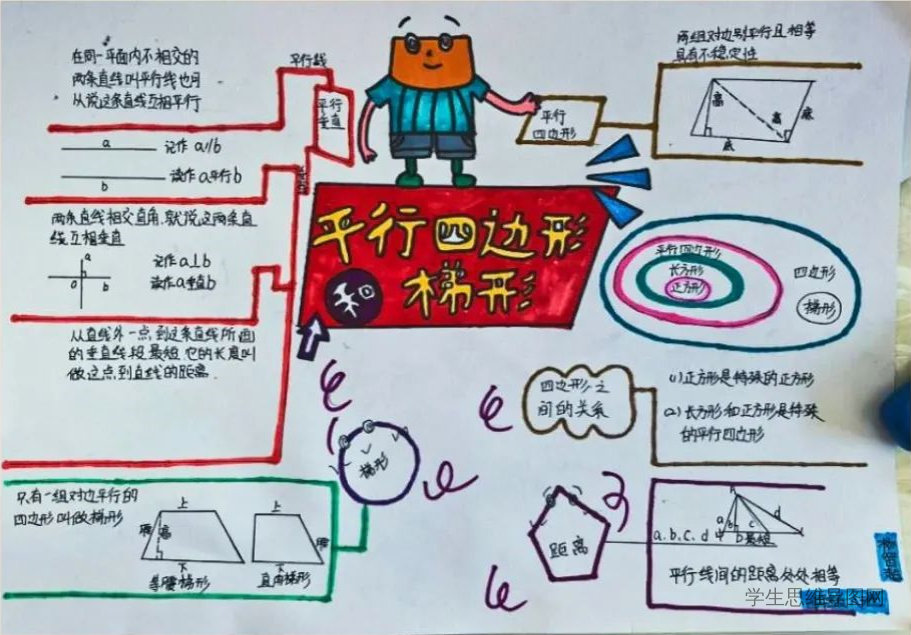 在同一平面内不相交的
两条直线叫平行线也可
以说这条直线互相平行
平行线
平行
垂直
a
记作 a//b
b
读作 a平行b
两条直线相交直角,就说这两条直
线互相垂直
a
o
b
记作 a⊥b
读作 a垂直b
从直线外一点,到这条直线所画
的垂直线段最短,它的长度叫
做这点到直线的距离.
平行四边形
和
梯形
平行
四边形
两组对边别平行且相等
具有不稳定性
高
高
底
底
平行四边形
长方形
正方形
四边形
梯形
四边形之
间的关系
(1)正方形是特殊的正方形
(2)长方形和正方形是特殊
的平行四边形
梯形
只有一组对边平行的
四边形叫做梯形
上
腰
高
下
等腰梯形
上
腰
下
直角梯形
距离
a.b.c.d中b最短
a
b
c
d
平行线间的距离处处相等
学生思维导图网